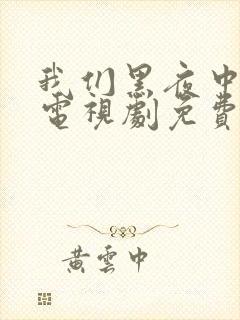 我们黑夜中
電視劇免費
黄雲中